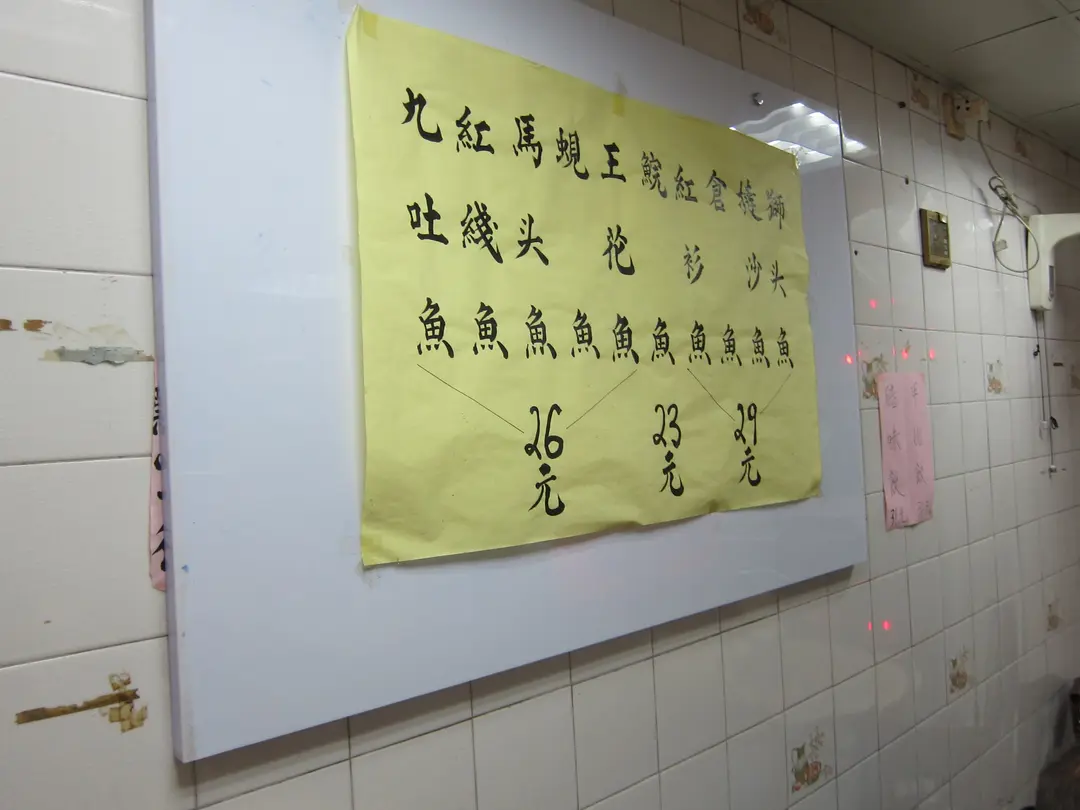 九吐魚
紅綫魚
馬头魚
蜆魚
王袍魚
鯇魚
紅衫魚
倉魚
撻沙魚
獅头魚
26元
23元
29元